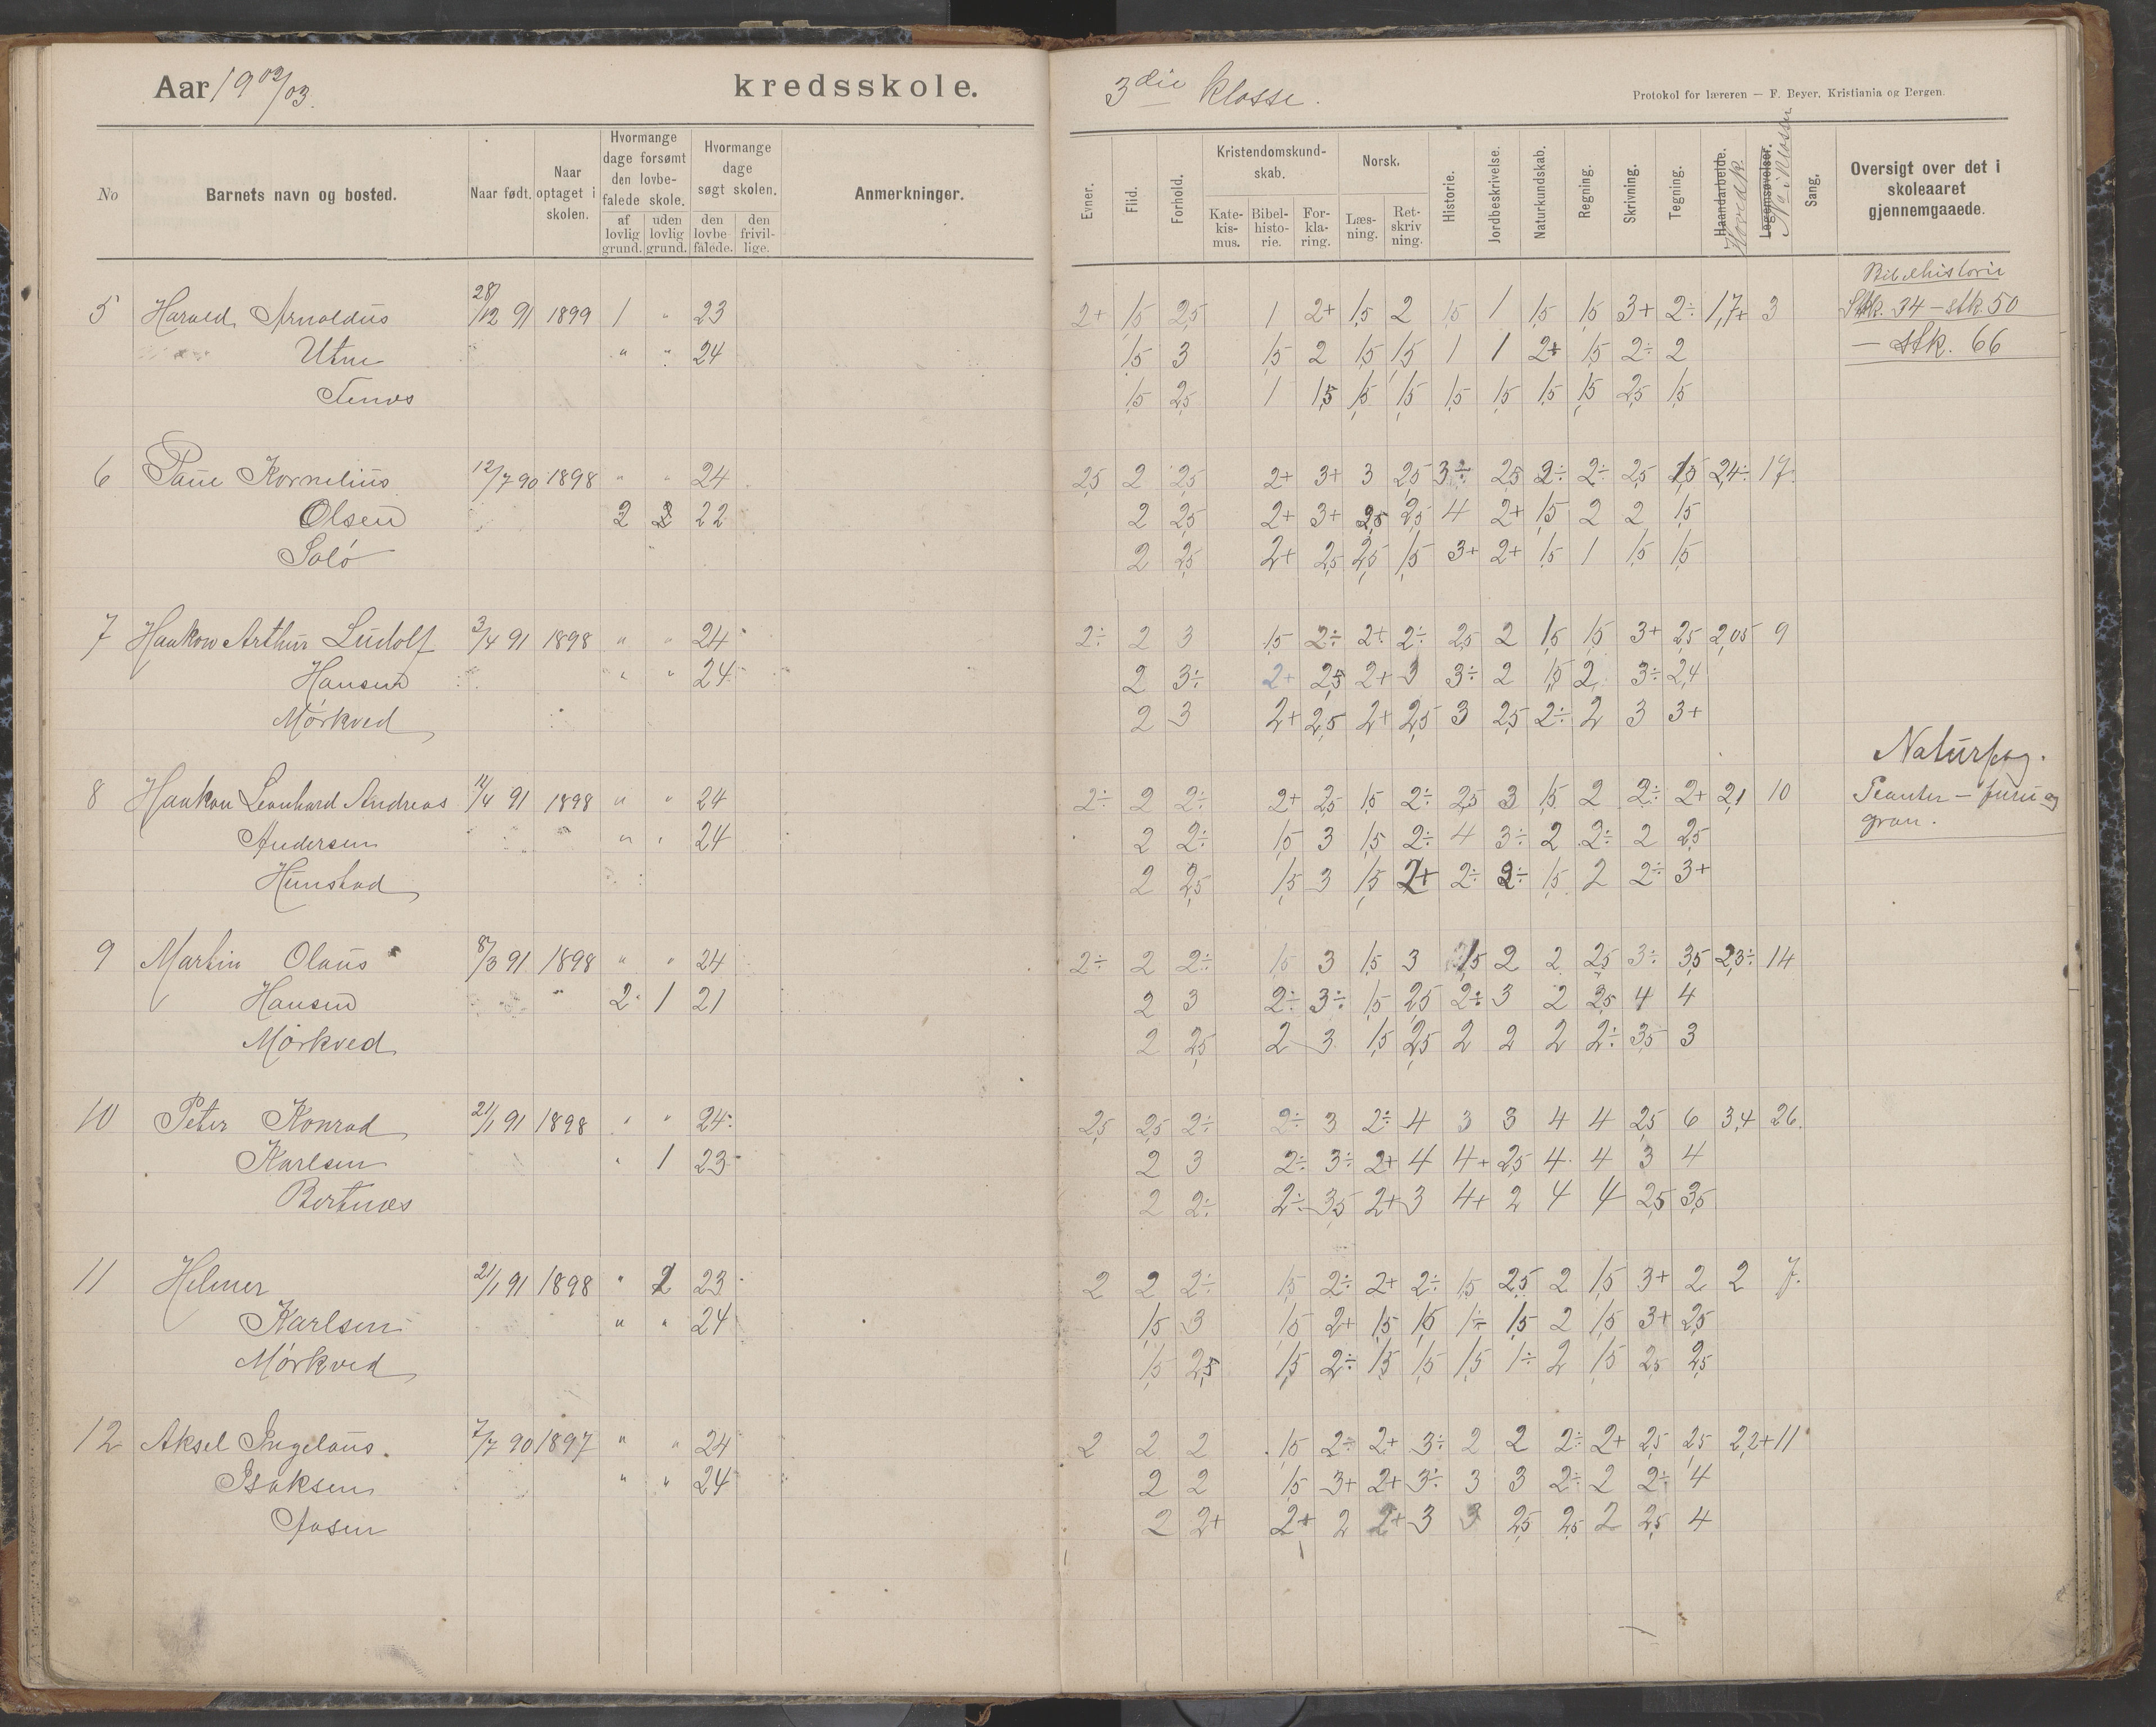 Aar 1902/03. kredsskole.
3die klasse.
Protokol for læreren — F. Beyer, Kristiania og Bergen.
No Barnets navn og bosted. Naar født. Naar optaget i skolen. Hvormange dage forsømt den lovbefalede skole. af lovlig grund. uden lovlig grund. Hvormange dage søgt skolen. den lovbefalede. den frivillige. Anmerkninger.
Evner. Flid. Forhold. Kristendomskundskab. Katekismus. Bibelhistorie. Forklaring. Norsk. Læsning. Retskrivning. Historie. Jordbeskrivelse. Naturkundskab. Regning. Skrivning. Tegning. Haandarbeide. Hovedk. Legemsøvelser. No i klassen Sang. Oversigt over det i skoleaaret gjennemgaaede.
Bibelhistorie
5 Harald Arnoldus 28/12 91 1899 1 " 23 2+ 1,5 2,5 1 2+ 1,5 2 1,5 1 1,5 1,5 3+ 2÷ 1,7+ 3 Stk. 34 – stk. 50
Utne " " 24 1,5 3 1,5 2 1,5 1,5 1 1 2+ 1,5 2÷ 2 — stk. 66
Tennes 1,5 2,5 1 1,5 1,5 1,5 1,5 1,5 1,5 1,5 2,5 1,5
6 Paul Kornelius 12/7 90 1898 " " 24 2,5 2 2,5 2+ 3+ 3 2,5 3÷ 2,5 2÷ 2÷ 2,5 1,5 2,4÷ 17.
Olsen 2 22 2 2,5 2+ 3+ 2,5 2,5 4 2+ 1,5 2 2 1,5
Solö 2 2,5 2+ 2,5 2,5 1,5 3+ 2+ 1,5 1 1,5 1,5
7 Haakon Arthur Ludolf 3/4 91 1898 " " 24 2÷ 2 3 1,5 2÷ 2+ 2÷ 2,5 2 1,5 1,5 3+ 2,5 2,05 9
Hansen " " 24 2 3÷ 2+ 2,5 2+ 3 3÷ 2 1,5 2 3÷ 2,4
Mörkved 2 3 2+ 2,5 2+ 2,5 3 2,5 2÷ 2 3 3+
Naturfag.
8 Haakon Leonhard Andreas 12/4 91 1898 " " 24 2÷ 2 2÷ 2+ 2,5 1,5 2÷ 2,5 3 1,5 2 2÷ 2+ 2,1 10 Planter – furu og
Andersen " " 24 2 2÷ 1,5 3 1,5 2÷ 4 3÷ 2 2÷ 2 2,5 gran.
Hunstad 2 2,5 1,5 3 1,5 2+ 2÷ 2÷ 1,5 2 2÷ 3+
9 Martin Olaus 8/3 91 1898 " " 24 2÷ 2 2÷ 1,5 3 1,5 3 1,5 2 2 2,5 3÷ 3,5 2,3÷ 14
Hansen 2 1 21 2 3 2÷ 3÷ 1,5 2,5 2÷ 3 2 2,5 4 4
Mörkved 2 2,5 2 3 1,5 2,5 2 2 2 2÷ 3,5 3
10 Peter Konrad 21/1 91 1898 " " 24 2,5 2,5 2÷ 2÷ 3 2÷ 4 3 3 4 4 2,5 6 3,4 26.
Karlsen " 1 23 2 3 2÷ 3÷ 2+ 4 4+ 2,5 4 4 3 4
Bertnes 2 2÷ 2÷ 3,5 2+ 3 4+ 2 4 4 2,5 3,5
11 Helmer 21/1 91 1898 " 23 2 2 2÷ 1,5 2÷ 2+ 2÷ 1,5 2,5 2 1,5 3+ 2 2 7.
Karlsen " " 24 1,5 3 1,5 2+ 1,5 1,5 1÷ 1,5 2 1,5 3+ 2,5
Mörkved 1,5 2,5 1,5 2÷ 1,5 1,5 1,5 1÷ 2 1,5 2,5 2,5
12 Aksel Ingelaus. 7/7 90 1897 " " 24 2 2 2 1,5 2÷ 2+ 3÷ 2 2 2÷ 2+ 2,5 2,5 2,2+ 11
Isaksen " " 24 2 2 1,5 3+ 2+ 3÷ 3 3 2÷ 2 2÷ 4
Åsen 2 2+ 2+ 2 2+ 3 3 2,5 2,5 2 2,5 4